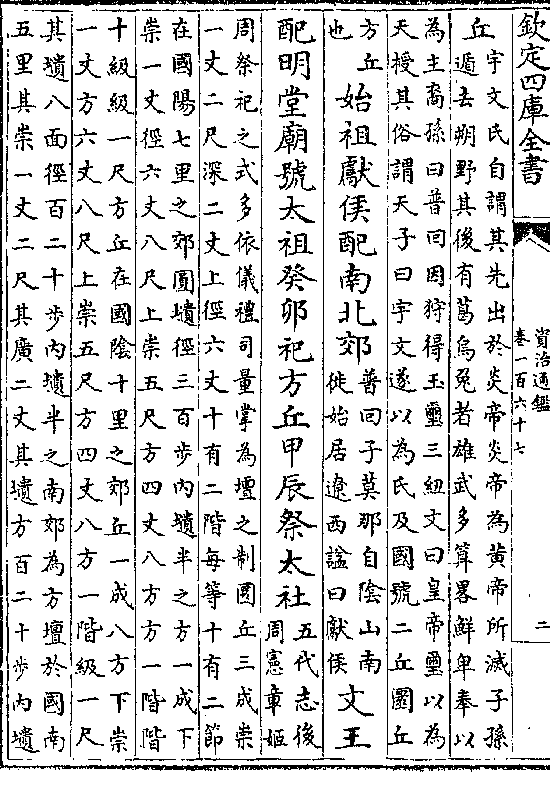 欽定四庫全書
資治通鑑
卷一百六十七
二
丘
宇文氏自謂其先出於炎帝炎帝為黄帝所滅子孫
遁去朔野其後有葛烏兔者雄武多算畧鮮卑奉以
為主裔孫曰普回因狩得玉璽三紐文曰皇帝璽以為
天授其俗謂天子曰宇文遂以為氏及國號二丘圜丘
方丘
也
始祖獻侯配南北郊
普回子莫那自陰山南
徙始居遼西諡曰獻侯
文王
配明堂廟號太祖癸卯祀方丘甲辰祭太社
五代志後
周憲章姬
周祭祀之式多依儀禮司量掌為壇之制圜丘三成崇
一丈二尺深二丈上徑六丈十有二階每等十有二節
在國陽七里之郊圜壝徑三百步内壝半之方一成下
崇一丈徑六丈八尺上崇五尺方四丈八方方一階階
十級級一尺方丘在國陰十里之郊丘一成八方下崇
一丈方六丈八尺上崇五尺方四丈八方一階級一尺
其壝八面徑百二十步内壝半之南郊為方壇於國南
五里其崇一丈二尺其廣二丈其壝方百二十步内壝